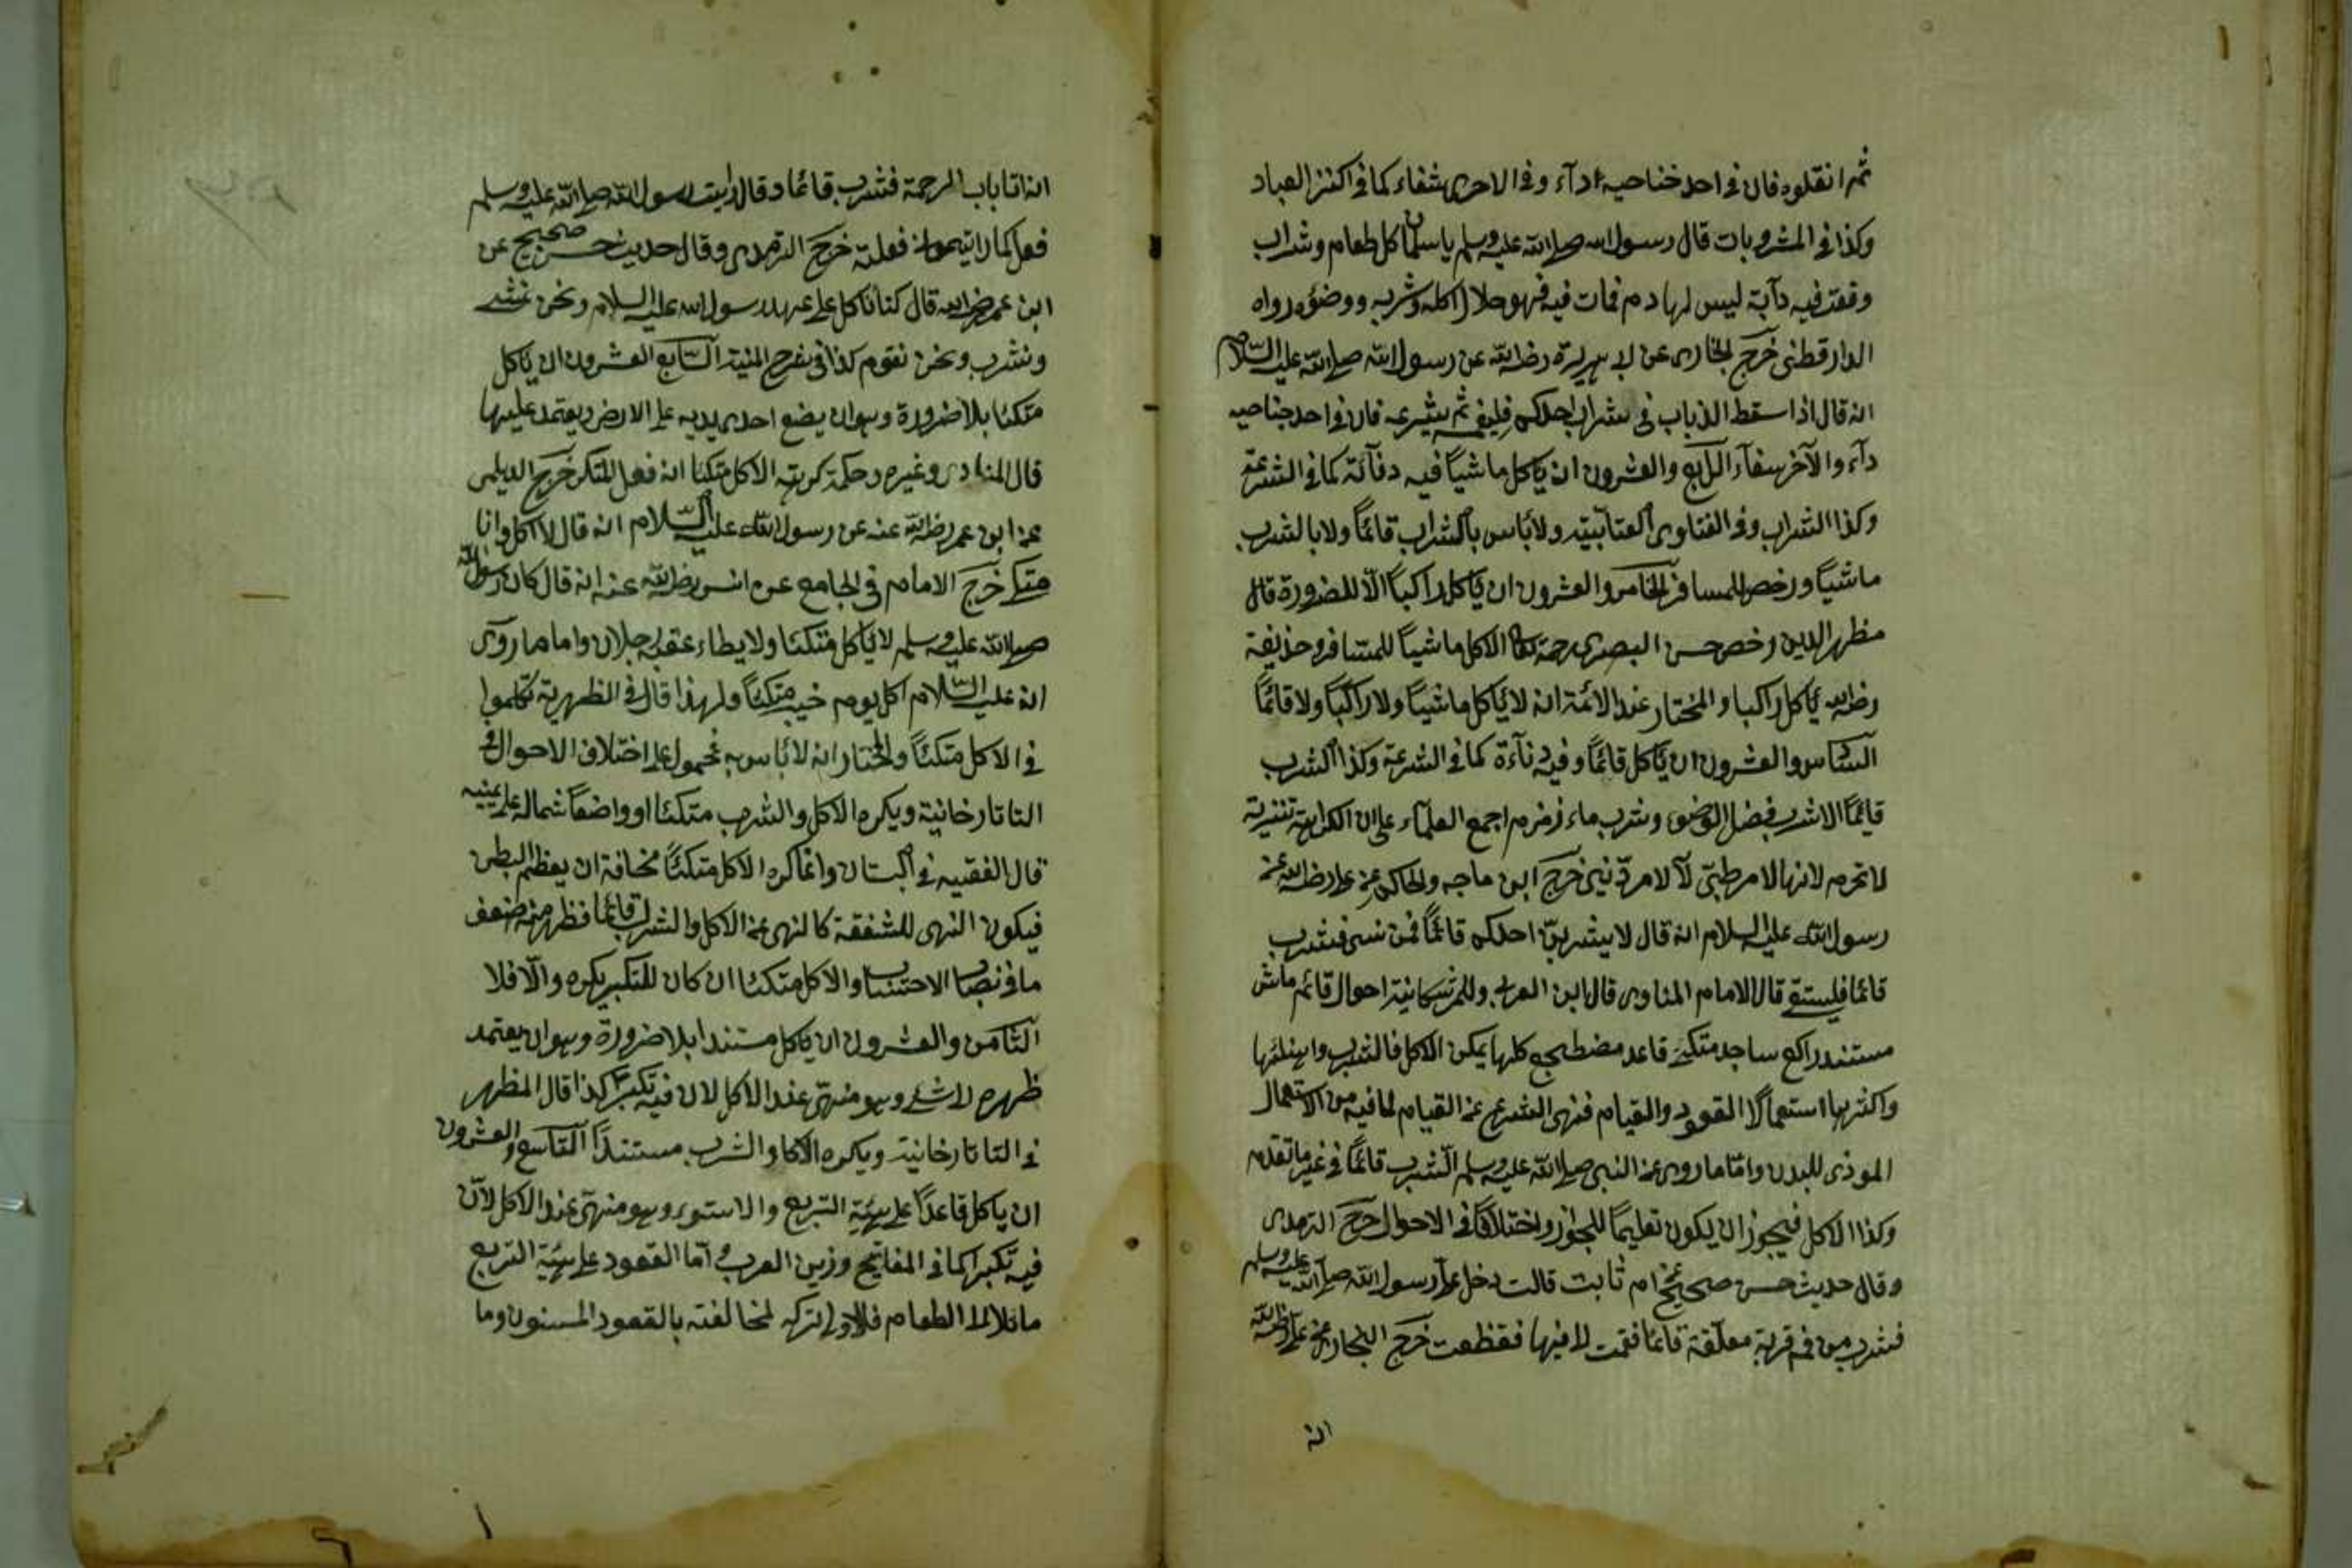 ثم انقلوه فان فى احد خناحيه داء وفى الاخرى شفاء كما فى اكنز العباد
وكذا فى المشروبات قال رسول الله صلى الله عليه وسلم يا سلمان كل طعام وشراب
وقعت فيه دآبة ليس لها دم فمات فيه فهو حلال اكله وشربه ووضؤه رواه
الدارقطنى خرج البخارى عن ابى هريرة رضى الله عن رسول الله صلى الله عليه السلام
انه قال اذا سقط الذباب فى شراب احدكم فليغمسه ثم ينزعه فان فى احد جناحيه
دآء والآخر شفآء الرابع والعشرون ان ياكل ماشيا فيه دنآئة كما فى الشرعة
وكذا الشراب وفى الفتاوى العتابية ولا باس بالشراب قائماً ولا بالشرب
ماشياً ورخص للمسافر الخامس والعشرون ان ياكل راكباً الّا للضرورة قال
مظهر الدين رخص حسن البصرى رحمه الله الاكل ماشياً للمسافر وحذيفة
رضى الله ياكل راكبا والمختار عند الائمة انه لا ياكل ماشياً ولا راكباً ولا قائماً
السادس والعشرون ان ياكل قائماً وفيه دنآءة كما فى الشرعة وكذا الشرب
قائماً الا شرب فضل الوضوء وشرب ماء زمزم اجمع العلمآء على ان الكراهة تنزيهة
لا تحرم لانها لامر طبىّ لآ لامر دينى خرج ابن ماجه والحاكم عن على رضى الله عنه
رسول الله عليه السلام انه قال لا يشربنّ احدكم قائماً فمن نسى فشرب
قائما فليستق قال الامام المناوى قال ابن العربى وللمرء ثمانية احوال قائم ماش
مستند راكع ساجد متكئ قاعد مضطجع كلها يمكن الاكل فالشرب واهنئها
واكثرها استعمالا القعود والقيام فنهى الشرع عن القيام لما فيه من الاستعجال
الموذى للبدن وامّا ما روى عن النبى صلى الله عليه وسلم الشرب قائماً فى غير ما تقدم
وكذا الاكل فيجوز ان يكون تعليماً للجواز واختلافاً فى الاحوال خرج الترمدى
وقال حديث حسن صحيح عن ام ثابت قالت دخل علىّ رسول الله صلى الله عليه وسلم
فشرب من فم قربة معلّقة قائما فقمت لا فيها فقطعت خرج البخارى عن على رضى الله
انه
انه اتا باب الرحمة فشرب قائما وقال رايت رسول الله صلى الله عليه وسلم
فعل كما رايتمونى فعلته خرج الترمدى وقال حديث حسن صحيح عن
ابن عمر رضى الله قال كنا ناكل على عهد رسول الله عليه السلام ونحن نمشى
ونشرب ونحن نقوم كذا فى شرح المنية السّابع العشرون ان ياكل
متكئا بلا ضرورة وهو ان يضع احدى يديه على الارض ويعتمد عليها
قال المنادى وغيره وحكمة كراهة الاكل متكئا انه فعل المتكبر خرج الديلمى
عن ابن عمر رضى الله عنه عن رسول الله عليه السّلام انه قال لا اكل وانا
متكى خرج الامام فى الجامع عن انس رضى الله عنه انه قال كان رسول الله
صلى الله عليه وسلم لا ياكل متكئا ولا يطاء عقبه رجلان واما ما روى
انه عليه السّلام اكل يوم خيبر متكئاً ولهذا قال فى الظهرية تكلموا
فى الاكل متكئاً والمختار انه لا باس به محمول على اختلاف الاحوال فى
التاتارخانية ويكره الاكل والشرب متكئا او واضعاً شماله على يمينه
قال الفقيه فى البستان وانما كره الاكل متكئاً مخافة ان يعظم البطن
فيكون النهى للشفقة كالنهى عن الاكل والشرب قائما فظهر منه ضعف
ما فى نصاب الاحتساب والاكل متكئا ان كان للتكبر يكره والّا فلا
الثامن والعشرون ان ياكل مستندا بلا ضرورة وهو ان يعتمد
ظهره لا شئ وهو منهىّ عند الاكل لان فيه تكبّر كذا قال المظهر
فى التاتارخانية ويكره الاكل والشرب مستنداً التاسع والعشرون
ان ياكل قاعداً على هيئة التربع والاستوء وهو منهىّ عند الاكل لآن
فيه تكبرا كما فى المفاتيح وزين العرب وامّا القعود على هيئة التربع
مائلا الى الطعام فالاولى تركه لمخالفته بالقعود المسنون وما